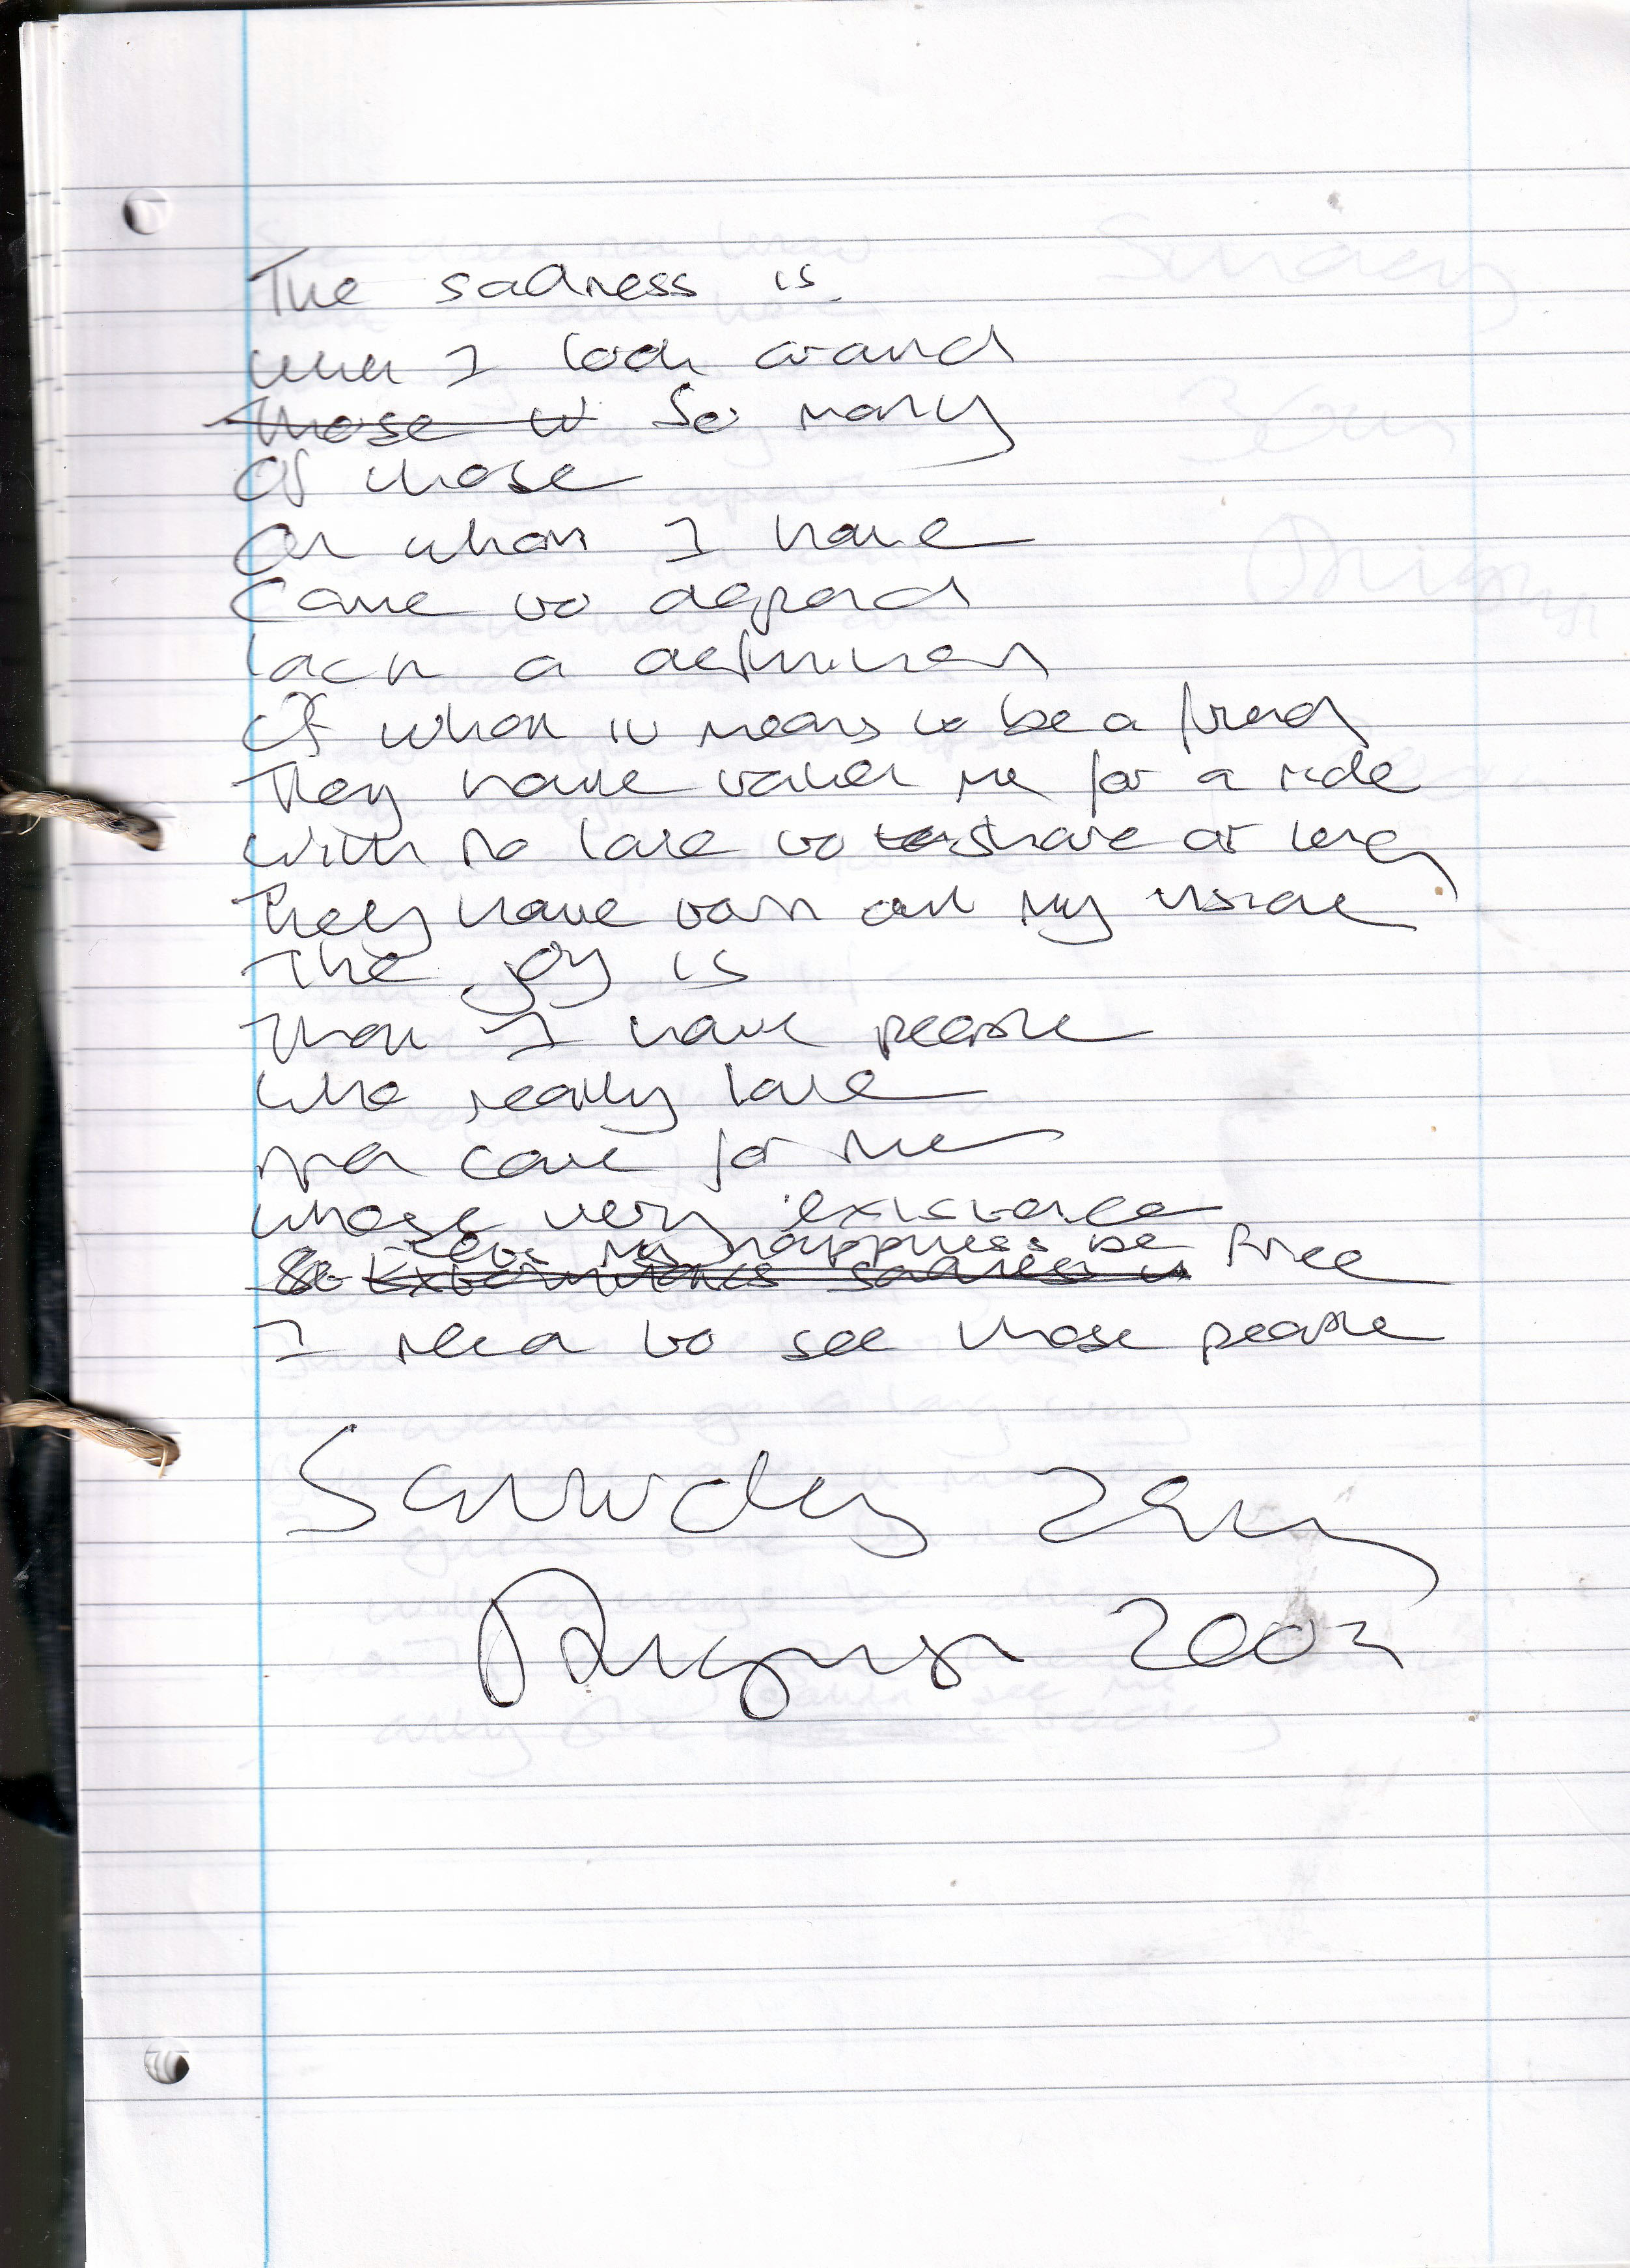 The sadness is
when I look around
those w So many
Of those
On whom I have
Came to depend
lack a definition
Of what it means to be a friend
They have taken me for a ride
With no love to share or
They have torn out my inside
The joy is
That I have people
Who really love
and care for me
whose very existence
lets my happiness be free
I need to see those people
Saturday
August 2003